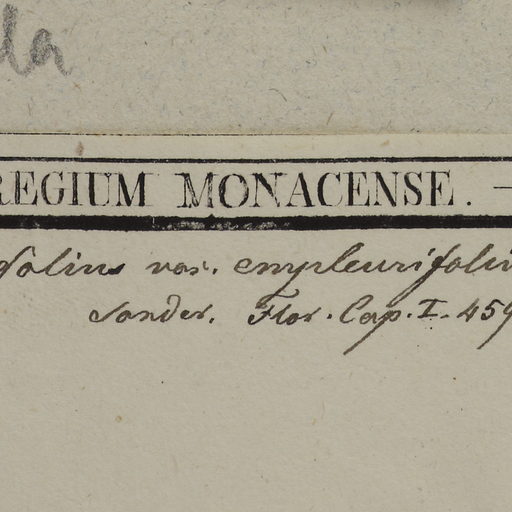 la
REGIUM MONACENSE. —
folius var. empleurifoliu
Sonder. Flor. Cap. I. 459